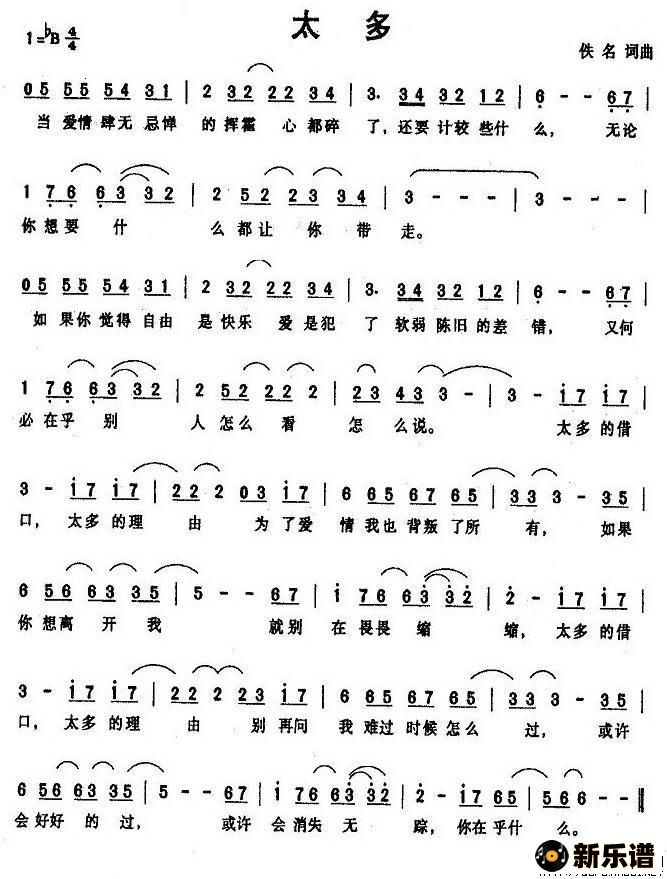 太多
1=♭B 4/4
佚名 词曲
05 55 54 31 | 2 32 22 34 | 3. 34 32 12 | 6 - - 67 |
当 爱情 肆无 忌惮 的 挥霍 心 都碎 了, 还要 计较 些什 么, 无论
1 76 63 32 | 2 52 23 34 | 3 - - - | 3 - - - |
你 想要 什 么 都让 你 带 走。
05 55 54 31 | 2 32 22 34 | 3. 34 32 12 | 6 - - 67 |
如 果你 觉得 自由 是 快乐 爱 是犯 了 软弱 陈旧 的差 错, 又何
1 76 63 32 | 2 52 22 2 | 23 43 3 - | 3 - i7 i7 |
必 在乎 别 人 怎么 看 怎 么说。 太多 的借
3 - i7 i7 | 22 2 03 i7 | 6 65 67 65 | 33 3 - 35 |
口, 太多 的理 由 为 了爱 情 我也 背叛 了所 有, 如果
6 56 63 35 | 5 - - 67 | i 76 63 32 | 2 - i7 i7 |
你 想离 开 我 就别 在 畏畏 缩 缩, 太多 的借
3 - i7 i7 | 22 2 23 i7 | 6 65 67 65 | 33 3 - 35 |
口, 太多 的理 由 别 再问 我 难过 时候 怎么 过, 或许
6 56 63 35 | 5 - - 67 | i 76 63 32 | 2 - i7 65 | 56 6 - - ‖
会 好好 的 过, 或许 会 消失 无 踪, 你在 乎什 么。
新乐谱